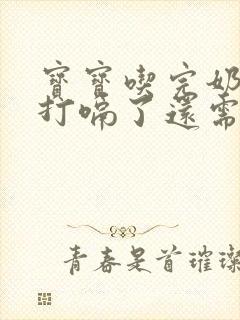 寶寶喫完奶
打嗝了還需
青春是首璀璨